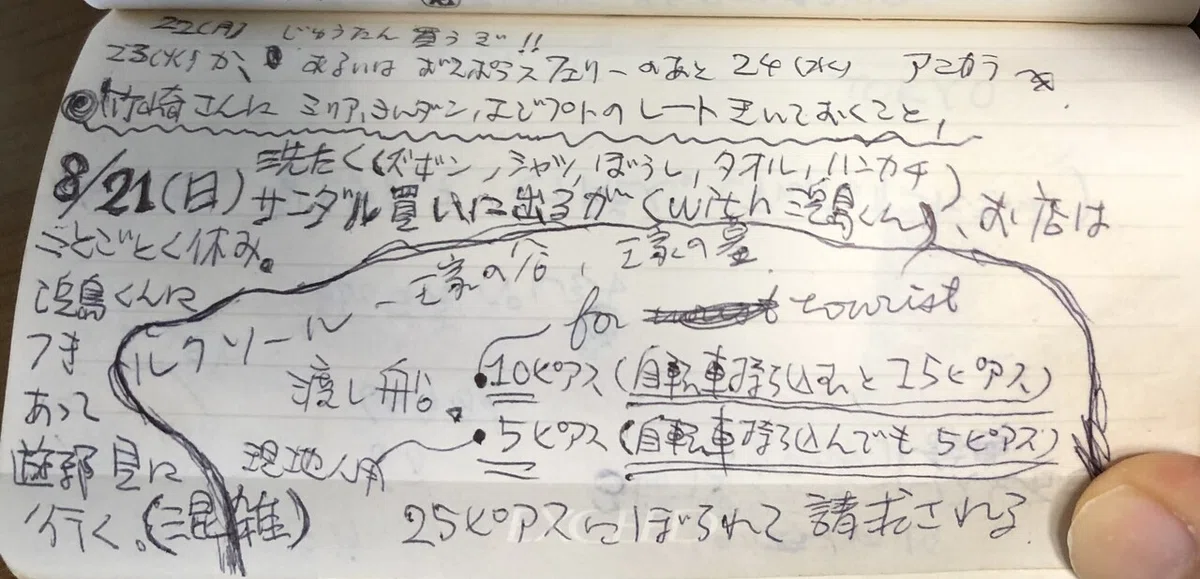 22(月) じゅうたん買うぞ!!
23(火)か、あるいはボスポラスフェリーのあと 24(水) アンカラ
◎竹崎さんに シリア,ヨルダン,エジプトのレートきいておくこと,
洗たく(ズボン,シャツ,ぼうし,タオル,ハンカチ)
8/21(日) サンダル買いに出るが(with 浜島くん)、お店は
ことごとく休み。
浜島くんに
つき
あって
遊郭見に
行く。(混雑)
王家の谷, 王家の墓
ルクソール
for tourist
渡し船。
・10ピアス(自転車持ち込むと15ピアス)
現地人用
・5ピアス(自転車持込んでも5ピアス)
25ピアスにぼられて請求される